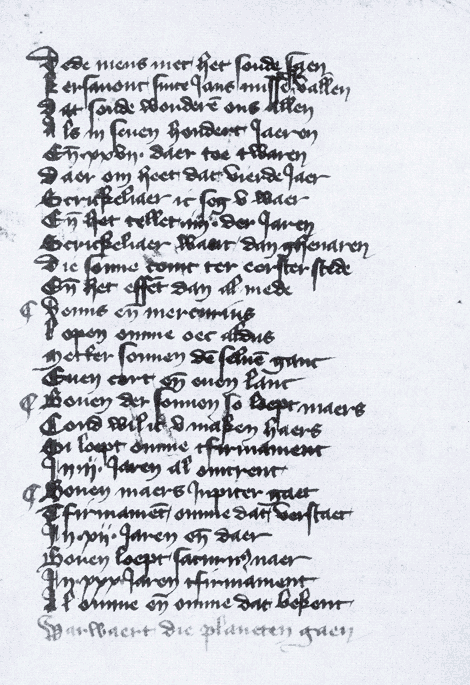 Dede mens niet het soude gaen
Kersavont sinte Jans misse vallen
Dat soude wonderē ons allen
Als in seuen hondert Jaeren
Eñ xxvij. daer toe twaren
Daer om heet dat vierde Jaer
Scrickeliaer ic seg v waer
Eñ het tellet iiij. der Jaren
Scrickeliaer want dan ghenaren
Die sonne comt ter eerster stede
Eñ het effēt dan al mede
¶ Venus eñ mercurius
Lopen omme oec aldus
metter sonnen dē seluē ganc
Euen cort eñ euen lanc
¶ Bouen der sonnen so loept maers
Cord wil ic v maken haers
Di loept omme tfirmament
In iij. Jaren al omtrent
¶ Bouen maers Jupiter gaet
Tfirmamēt omme dat verstaet
In xij. Jaren eñ daer
Bouen loept saturn9 naer
In xxx Jaren tfirmament
Al omme eñ omme dat bekent
Warwaert die planeten gaen